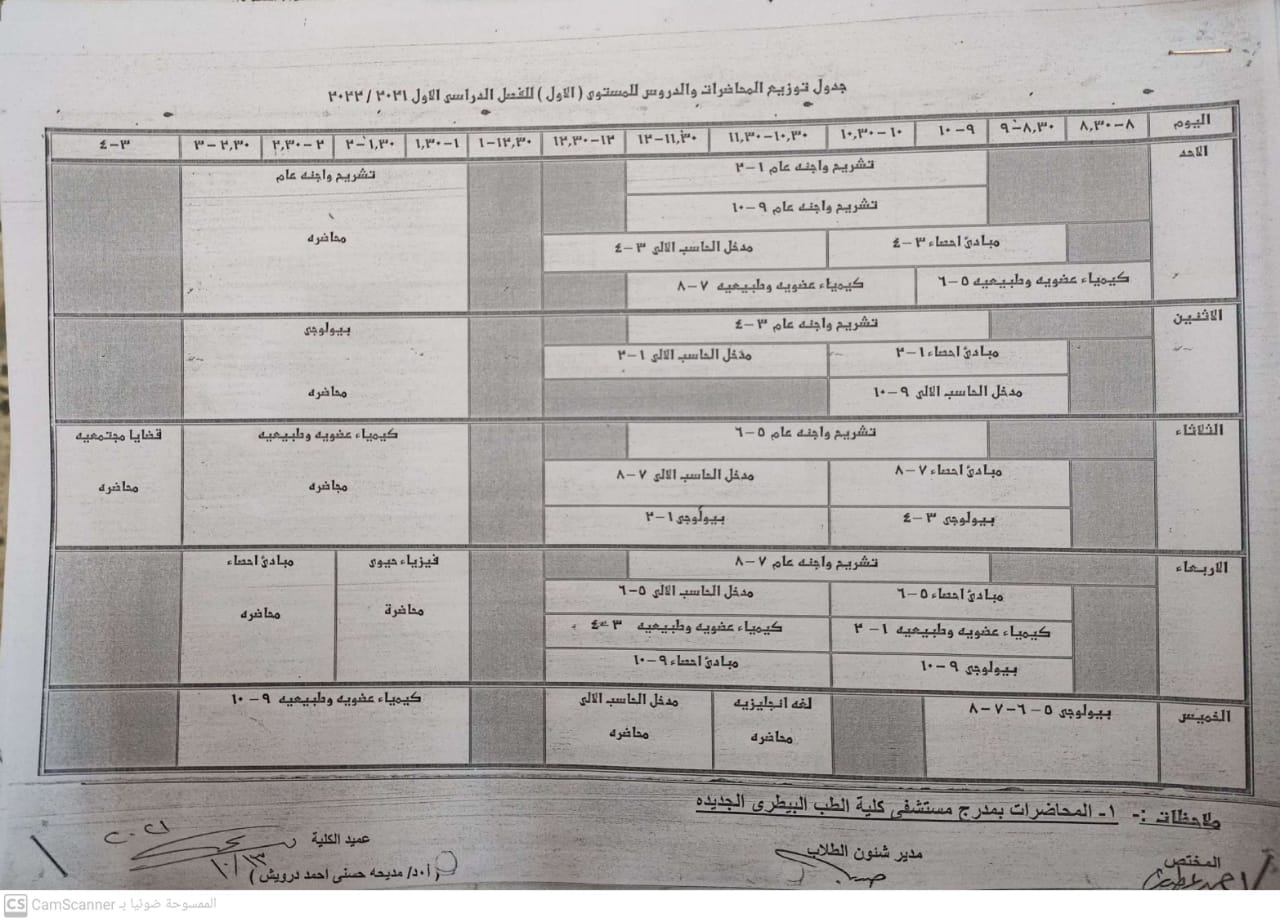 جدول توزيع المحاضرات والدروس للمستوى ( الاول ) للفصل الدراسى الاول ٢٠٢١ / ٢٠٢٢
اليوم ٨-٨,٣٠ ٨,٣٠-٩ ٩-١٠ ١٠-١٠,٣٠ ١٠,٣٠-١١,٣٠ ١١,٣٠-١٢ ١٢-١٢,٣٠ ١٢,٣٠-١ ١-١,٣٠ ١,٣٠-٢ ٢-٢,٣٠ ٢,٣٠-٣ ٣-٤
الاحد
تشريح واجنه عام ١-٢
تشريح واجنه عام
تشريح واجنه عام ٩-١٠
محاضره
مبادئ احصاء ٣-٤
مدخل الحاسب الالى ٣-٤
كيمياء عضويه وطبيعيه ٥-٦
كيمياء عضويه وطبيعيه ٧-٨
الاثنين
تشريح واجنه عام ٣-٤
بيولوجى
مبادئ احصاء ١-٢
مدخل الحاسب الالى ١-٢
مدخل الحاسب الالى ٩-١٠
محاضره
الثلاثاء
تشريح واجنه عام ٥-٦
كيمياء عضويه وطبيعيه
قضايا مجتمعيه
مبادئ احصاء ٧-٨
مدخل الحاسب الالى ٧-٨
محاضره
محاضره
بيولوجى ٣-٤
بيولوجى ١-٢
الاربعاء
تشريح واجنه عام ٧-٨
فيزياء حيوى
مبادئ احصاء
مبادئ احصاء ٥-٦
مدخل الحاسب الالى ٥-٦
محاضرة
محاضره
كيمياء عضويه وطبيعيه ١-٢
كيمياء عضويه وطبيعيه ٣-٤
بيولوجى ٩-١٠
مبادئ احصاء ٩-١٠
الخميس
بيولوجى ٥-٦-٧-٨
لغه انجليزيه
مدخل الحاسب الالى
كيمياء عضويه وطبيعيه ٩-١٠
محاضره
محاضره
ملاحظات :- ١- المحاضرات بمدرج مستشفى كلية الطب البيطرى الجديده
المختص
مدير شئون الطلاب
عميد الكلية
( أ.د/ مديحه حسنى احمد درويش )
٢٠٢١
١٠/١٣
CS CamScanner الممسوحة ضوئيا بـ